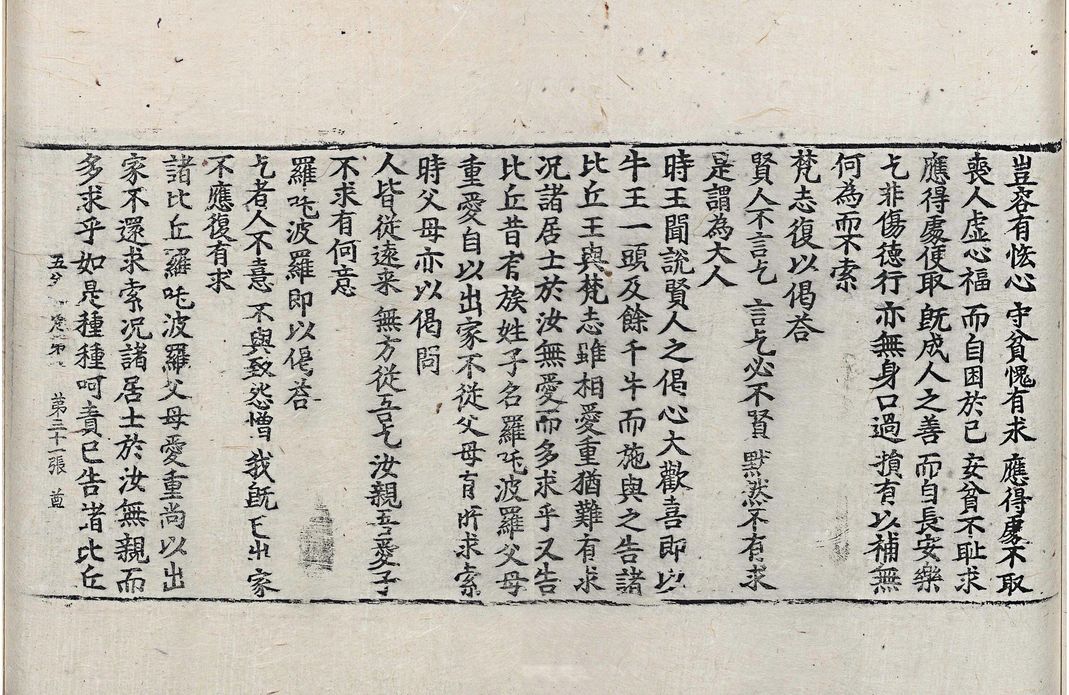 豈容有悋心 守貧愧有求 應得處不取
喪人虛心福 而自困於己 安貧不耻求
應得處便取 旣成人之善 而自長安樂
乞非傷德行 亦無身口過 損有以補無
何為而不索
梵志復以偈荅
賢人不言乞 言乞必不賢 默然不有求
是謂為大人
時王聞說賢人之偈心大歡喜即以
牛王一頭及餘千牛而施與之告諸
比丘王與梵志雖相愛重猶難有求
况諸居士於汝無愛而多求乎又告
比丘昔有族姓子名羅吒波羅父母
重愛自以出家不從父母有所求索
時父母亦以偈問
人皆從遠来 無方從吾乞 汝親吾愛子
不求有何意
羅吒波羅即以偈荅
乞者人不憙 不與致怨憎 我旣已出家
不應復有求
諸比丘羅吒波羅父母愛重尚以出
家不還求索况諸居士於汝無親而
多求乎如是種種呵責已告諸比丘
五分 第 第三十一張